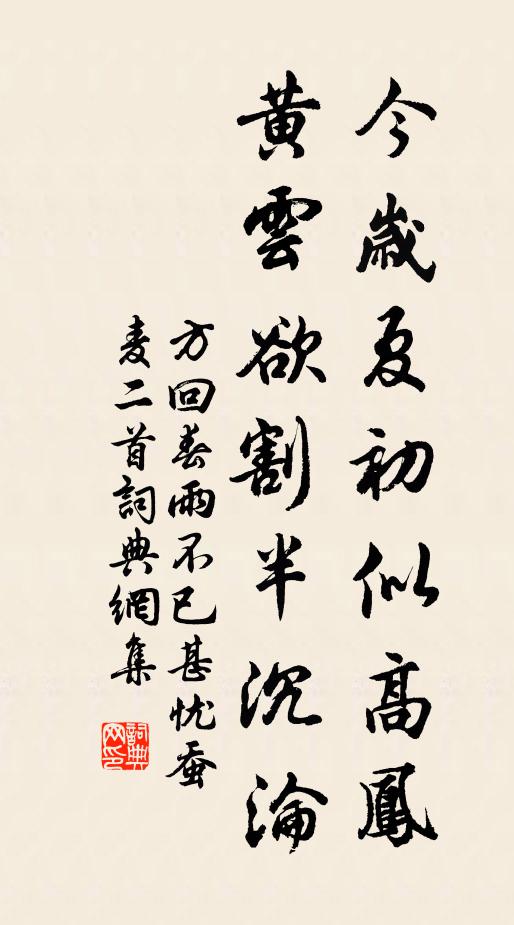 今歲夏初似高鳳
黃雲欲割半沉淪
方回春雨不已甚忧蚕
麦二首詞典網集
詞典
网印